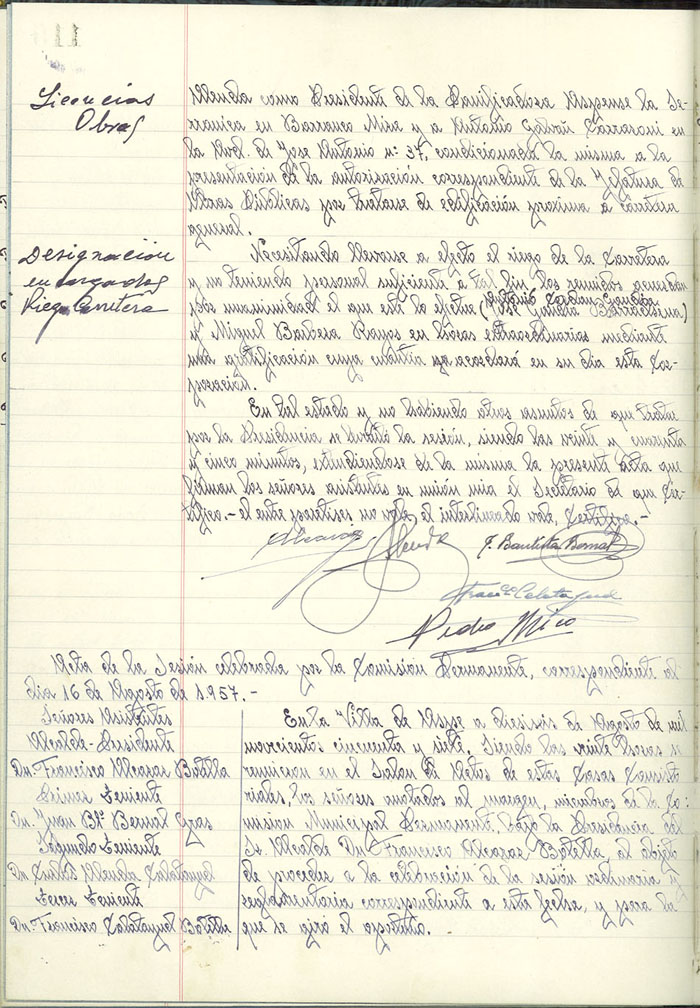 11
Licencias
Obras
Allenda como Presidente de la Panificadora Aspense la Se-
rranica en Barranco Mira y a Antonio Galvañ Carrasoni en
la Avd. de Jose Antonio nº 37, condicionada la misma a la
presentación de la autorización correspondiente de la Jefatura de
Obras Públicas por tratarse de edificación proxima a carretera
general.
Designación
encargados
Riego Carretera
Necesitando llevarse a efecto el riego de la Carretera
y no teniendo personal suficiente a tal fin los reunidos acuerdan
por unanimidad el que esta lo efectue (
y Miguel Barbera Rayos en horas extraordinarias mediante
una gratificación cuya cuantia acordará en su dia esta Cor-
poración.
En tal estado y no habiendo otros asuntos de que tratar
por la Presidencia se levantó la sesión, siendo las veinte y cuarenta
y cinco minutos, extendiendose de la misma la presente acta que
firman los señores asistentes en unión mia el Secretario de que Cer-
tifico.- el entre parentises no vale, el interlineado vale, Certifico.-
J. Bautista Bernal
Franco Calatayud
Pedro Mico
Acta de la Sesión celebrada por la Comision Permanente, correspondiente al
dia 16 de Agosto de 1957.-
Señores Asistentes
Alcalde-Presidente
Dn. Francisco Alcaraz Botella
Primer Teniente
Dn. Juan Btª Bernal Eras
Segundo Teniente
Dn. Carlos Allenda Calatayud
Tercer Teniente
Dn. Francisco Calatayud Botella
En la Villa de Aspe a dieciseis de Agosto de mil
novecientos cincuenta y siete. Siendo las veinte horas se
reunieron en el Salon de Actos de estas Casas Consisto
riales, los señores anotados al margen, miembros de la Co-
mision Municipal Permanente, bajo la Presidencia del
Sr Alcalde Dn. Francisco Alcaraz Botella, al objeto
de proceder a la celebración de la sesión ordinaria y
reglamentaria correspondiente a esta fecha, y para la
que se giró el oportuno.